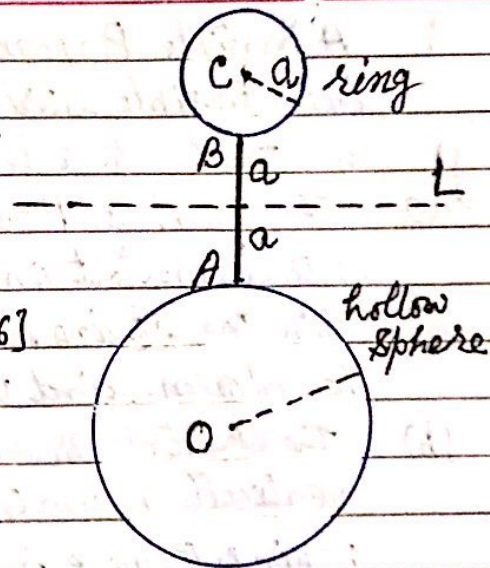 C a ring
B a
L
a
A
hollow
6] sphere
O